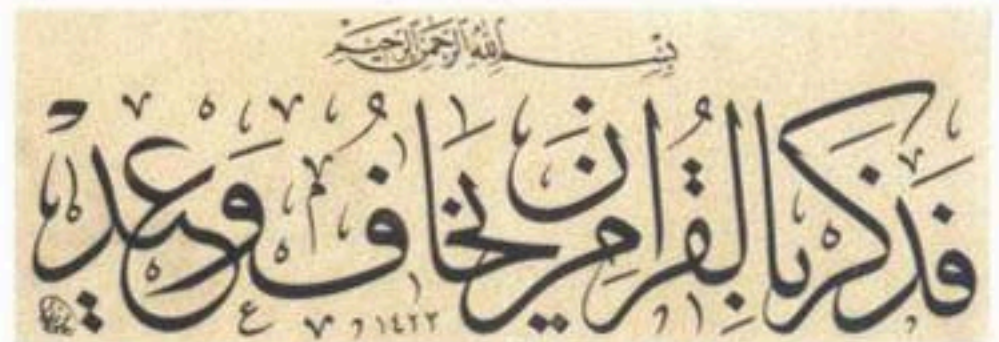 بِسْمِ اللهِ الرَّحْمٰنِ الرَّحِيمِ
فَذَكِّرْ بِالْقُرْاٰنِ مَنْ يَخَافُ وَعِيدِ
١٤٢٢